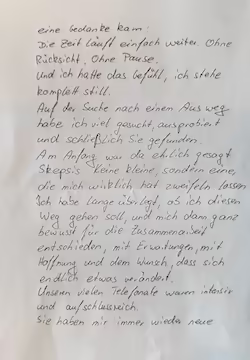 eine Gedanke kam:
Die Zeit läuft einfach weiter. Ohne
Rücksicht. Ohne Pause.
Und ich hatte das Gefühl, ich stehe
komplett still.
Auf der Suche nach einen Ausweg
habe ich viel gesucht, ausprobiert
und schließlich Sie gefunden.
Am Anfang war da ehrlich gesagt
Skepsis keine kleine, sondern eine,
die mich wirklich hat zweifeln lassen
Ich habe lange überlegt, ob ich diesen
Weg gehen soll, und mich dann ganz
bewusst für die Zusammenarbeit
entschieden, mit Erwartungen, mit
Hoffnung und dem Wunsch, dass sich
endlich etwas verändert.
Unseren vielen Telefonate waren intensiv
und aufschlussreich.
Sie haben mir immer wieder neue